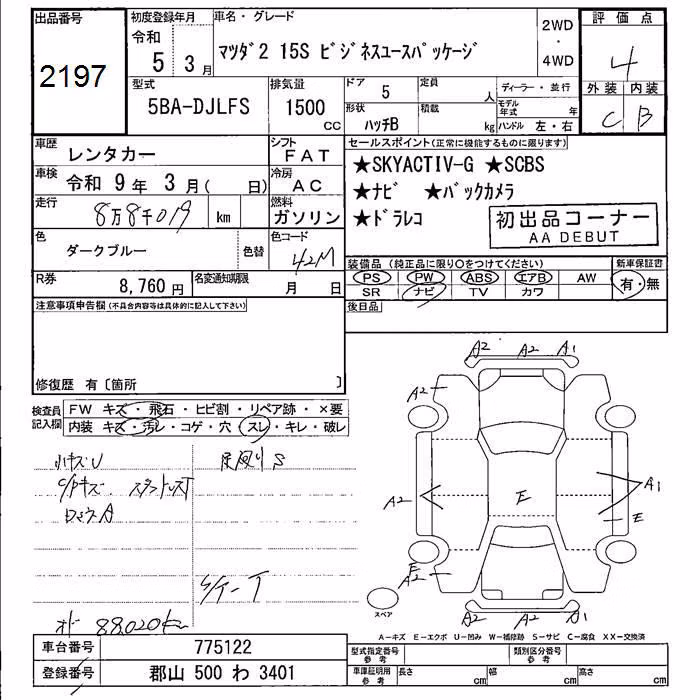 出品番号
2197
初度登録年月
令和
5 3月
車名・グレード
マツダ2 15S ビジネスユースパッケージ
2WD
・
4WD
評価点
4
外装 内装
C B
型式
5BA-DJLFS
排気量
1500
cc
ドア
5
定員
人
形状
ハッチB
積載
kg
ディーラー・並行
モデル年式
年
ハンドル 左・右
車歴
レンタカー
シフト
FAT
車検
令和 9年 3月( 日)
冷房
AC
走行
8万8千019
km
燃料
ガソリン
色
ダークブルー
色替
色コード
42M
R券
8,760 円
名変通知期限
月 日
セールスポイント(正常に機能するものに限ります)
★SKYACTIV-G ★SCBS
★ナビ ★バックカメラ
★ドラレコ
初出品コーナー
AA DEBUT
装備品 (純正品に限り〇をつけてください)
PS PW ABS エアB AW
SR ナビ TV カワ
新車保証書
有・無
後日品
注意事項申告欄(不具合内容等は具体的に記入して下さい)
修復歴 有〔箇所 〕
検査員
記入欄
FW キズ・飛石・ヒビ割・リペア跡・×要
内装 キズ・汚レ・コゲ・穴・スレ・キレ・破レ
小キズU
C/Pキズ
A2 A2 A1
A2
A2
E
A1
E
E
A2
A2 A2 A1
スペア
オド 88,020km
A-キズ E-エクボ U-凹み W-補修跡 S-サビ C-腐食 XX-交換済
車台番号
775122
登録番号
郡山 500 わ 3401
型式指定番号
参考
類別区分番号
参考
車庫証明用
参考
長さ
cm
幅
cm
高さ
cm